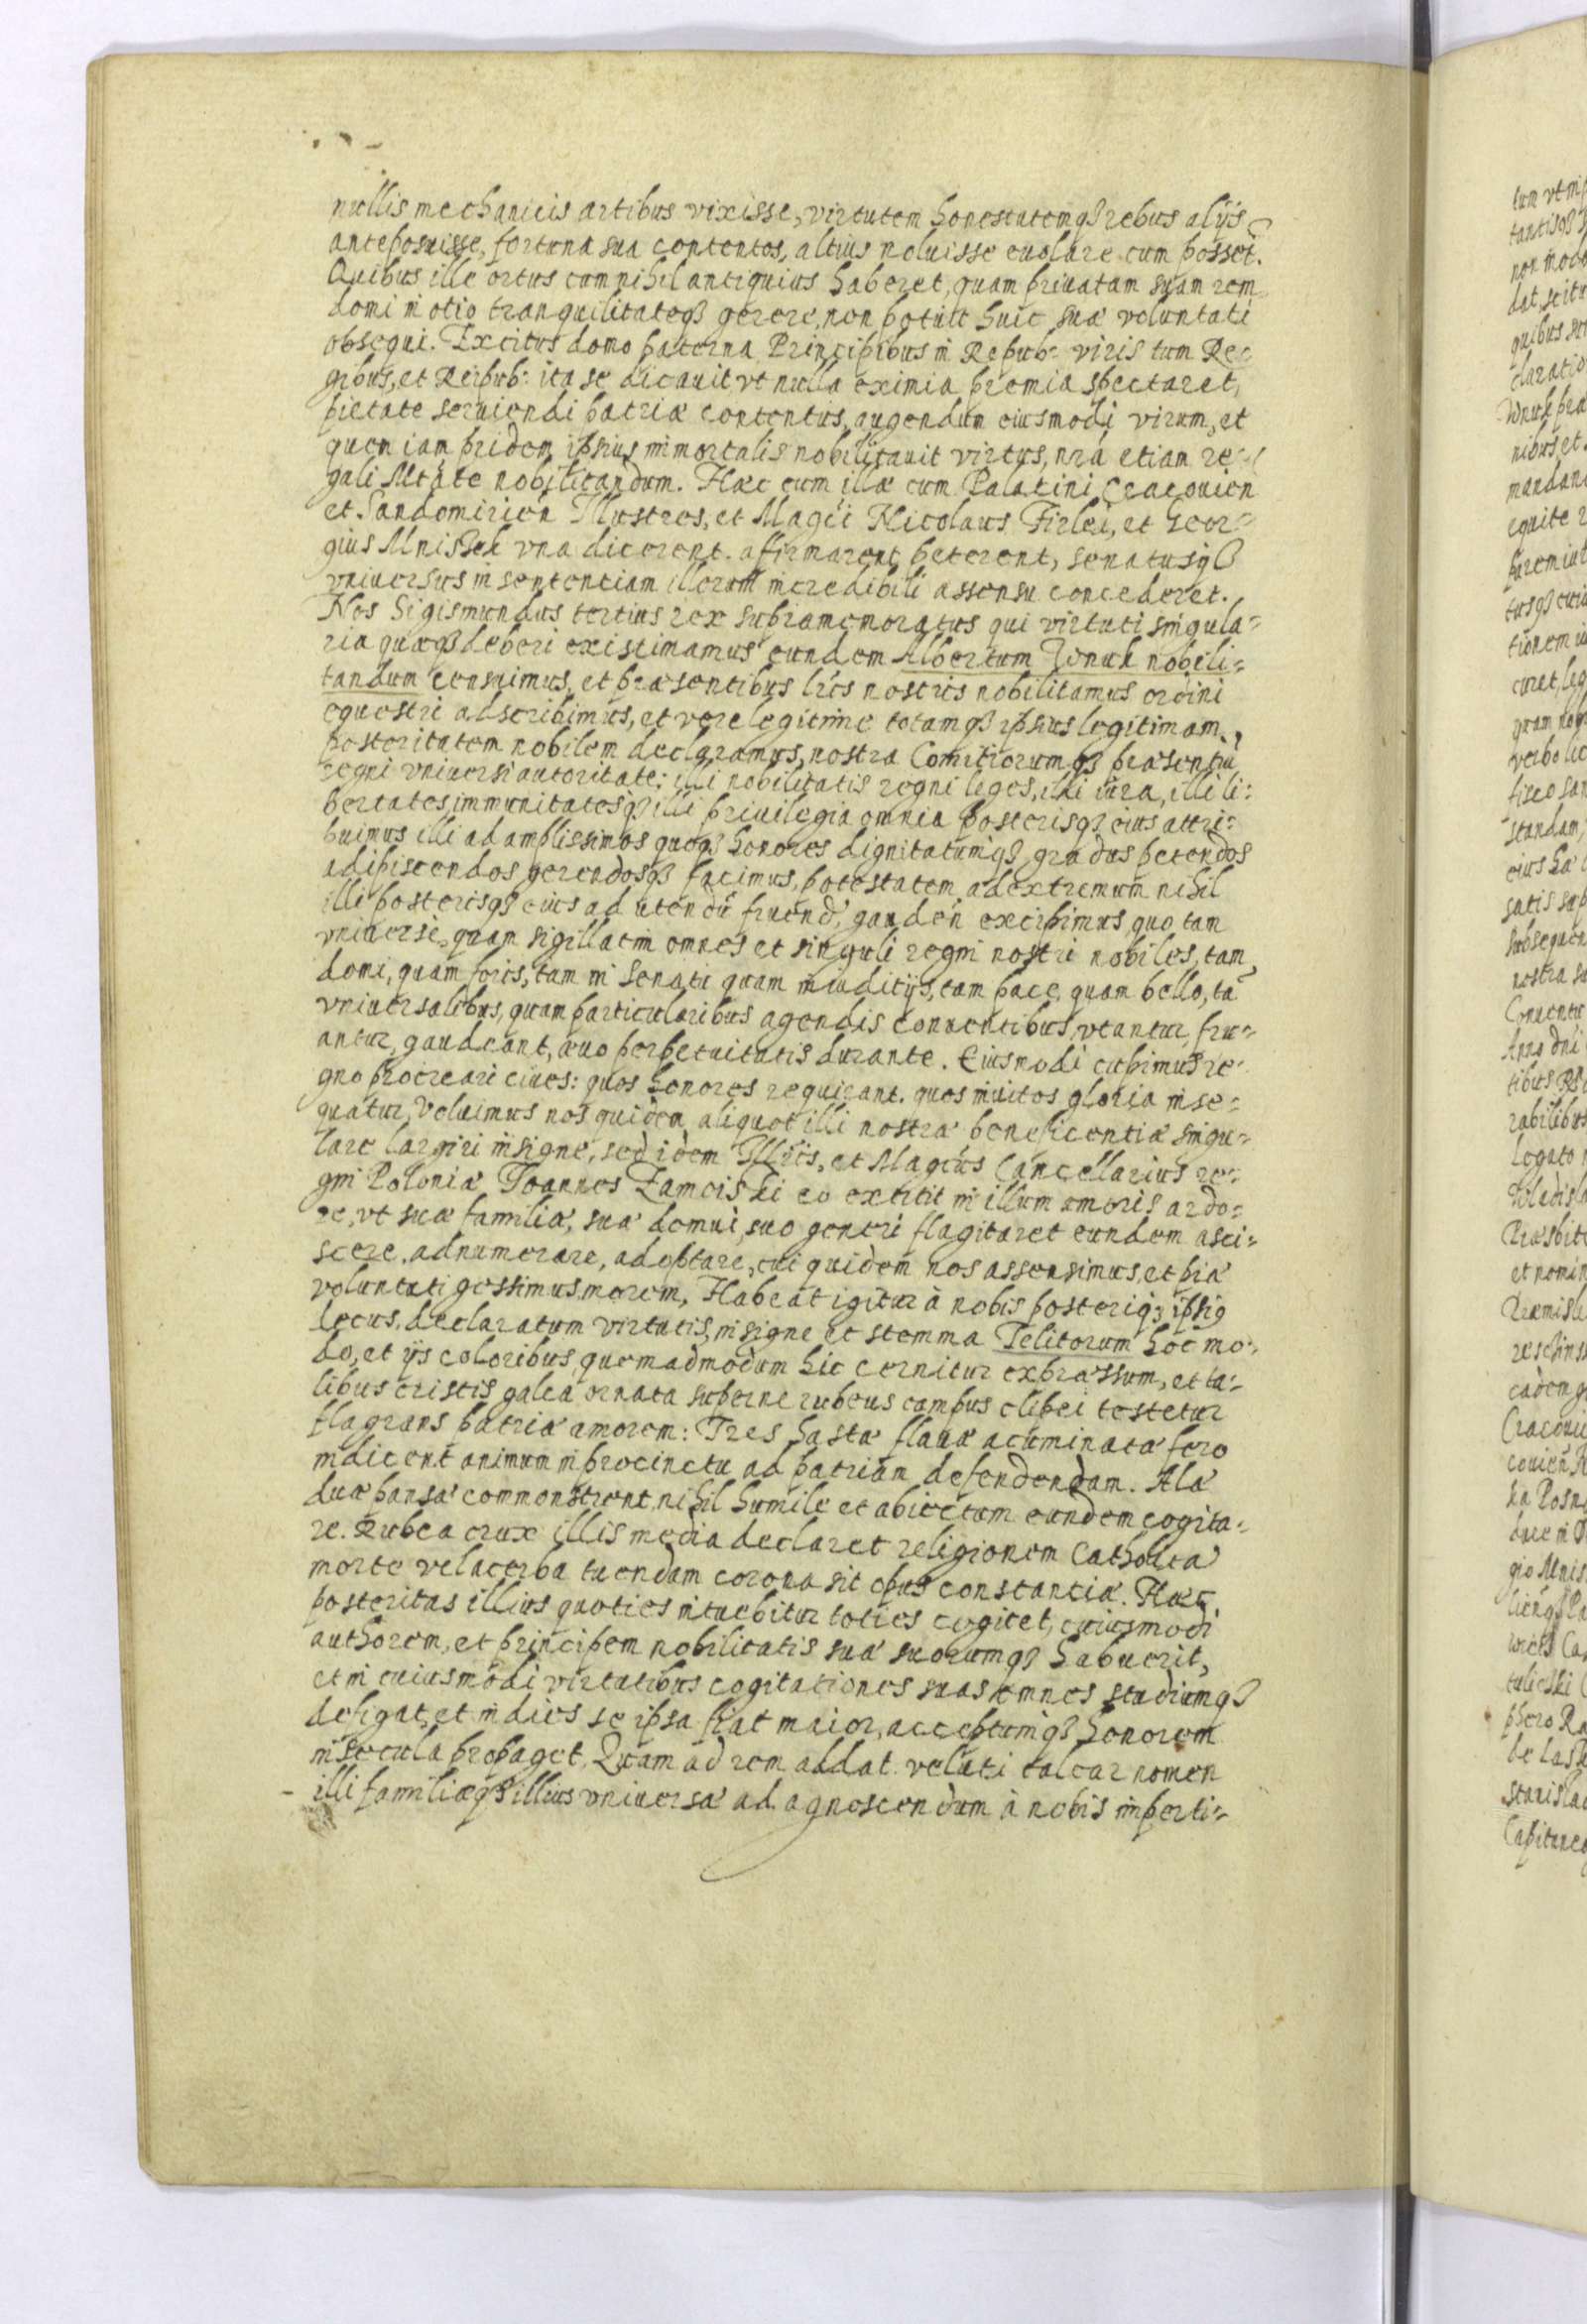 nullis mechanicis artibus vixisse, virtutem honestatemq3 rebus alijs
anteposuisse, fortuna sua contentos, altius noluisse euolare cum posset.
Quibus ille ortus cum nihil antiquius haberet, quam priuatam suam rem
domi in otio tranquilitateq3 gerere, non potuit huic suæ voluntati
obsequi. Excitus domo paterna Principibus in Repub: viris tum Re=
gibus, et Reipub: ita se dicauit vt nulla eximia premia spectaret,
pietate seruiendi patriæ contentus, augendum eiusmodi virum, et
quem iam pridem ipsius immortalis nobilitauit virtus, nrã etiam re=
gali Mtãte nobilitandum. Hæc cum illæ cum Palatini Cracouien
et Sandomirien Illustres, et Magci Nicolaus Firlei, et Geor=
gius Mniszek vna dicerent. affirmarent peterent, senatusq3
vniuersus in sententiam illorum incredibili assensu concederet.
Nos Sigismundus tertius rex supramemoratus qui virtuti singula=
ria quæq3 deberi existimamus eundem Albertum Wnuk nobili=
tandum censuimus, et præsentibus lris nostris nobilitamus ordini
equestri adscribimus, et vere legitime totamq3 ipsius legitimam
posteritatem nobilem declaramus, nostra Comitiorumq3 præsentiu
regni vniuersi autoritate: illi nobilitatis regni leges, illi iura, illi li:
bertates immunitatesq3 illi priuilegia omnia posterisq3 eius attri=
buimus illi ad amplissimos quosq3 honores dignitatumq3 gradus petendos
adipiscendos gerendosq3 facimus, potestatem, ad extremum nihil
illi posterisq3 eius ad utendũ fruend, gauden excipimus quo tam
vniuersi, quam sigillatim omnes et singuli regni nostri nobiles, tam
domi, quam foris, tam in senatu quam in iuditijs, tam pace, quam bello, tã
vniuersalibus, quam particularibus agendis conuentibus, vtantur, fru=
antur, gaudeant, æuo perpetuitatis durante. Eiusmodi cupimus re=
gno procreari ciues: quos honores requirant. quos inuitos gloria inse=
quatur, Voluimus nos quidem aliquot illi nostræ beneficentiæ singu=
lare largiri insigne, sed idem Illris, et Magcus Cancellarius re=
gni Poloniæ Joannes Zamoiski eo extitit in illum amoris ardo=
re, vt suæ familiæ, suæ domui, suo generi flagitaret eundem asci=
scere, adnumerare, adoptare, cui quidem nos assensimus, et piæ
voluntati gessimus morem, Habeat igitur à nobis posteriq3 ipsig
decus, declaratum virtutis, insigne et stemma Jelitorum hoc mo=
do, et ijs coloribus, quemadmodum hic cernitur expræssum, et ta=
libus cristis galea ornata superne rubeus campus clipei testetur
flagrans patriæ amorem: Tres hastæ flauæ acuminatæ fero
indicent animum in procinctu ad patriam defendendam. Alæ
duæ pansæ commonstrent nihil humile et abiectum eundem cogita=
re. Rubea crux illis media declaret religionem Catholicã
morte vel acerba tuendam corona sit opus constantiæ. Hæc
posteritas illius quoties intuebitur toties cogitet, cuiusmodi
authorem, et principem nobilitatis suæ suorumq3 habuerit,
et in cuiusmodi virtutibus cogitationes suas omnes studiumq3
defigat, et in dies se ipsa fiat maior, acceptumq3 honorem
in secula propaget. Quam ad rem addat veluti calcar nomen
illi familiæq3 illius vniuersæ ad agnoscendum à nobis imperti=